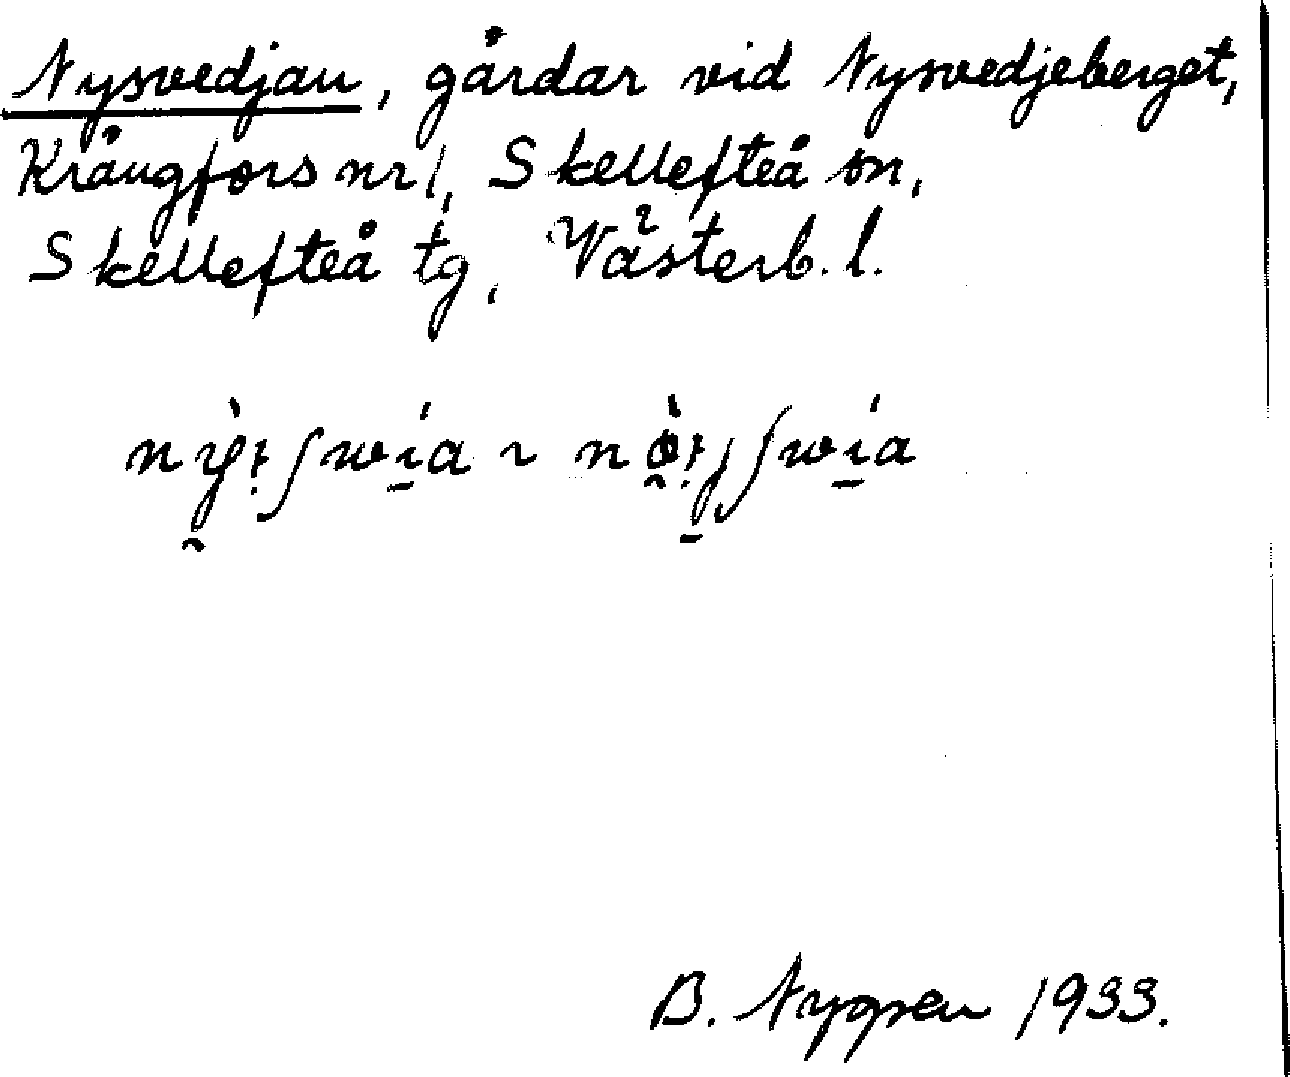 Nysvedjan, gårdar vid Nysvedjeberget,
Krångfors nr 1, Skellefteå sn,
Skellefteå tg, Västerb. l.
B. Nygren 1933.